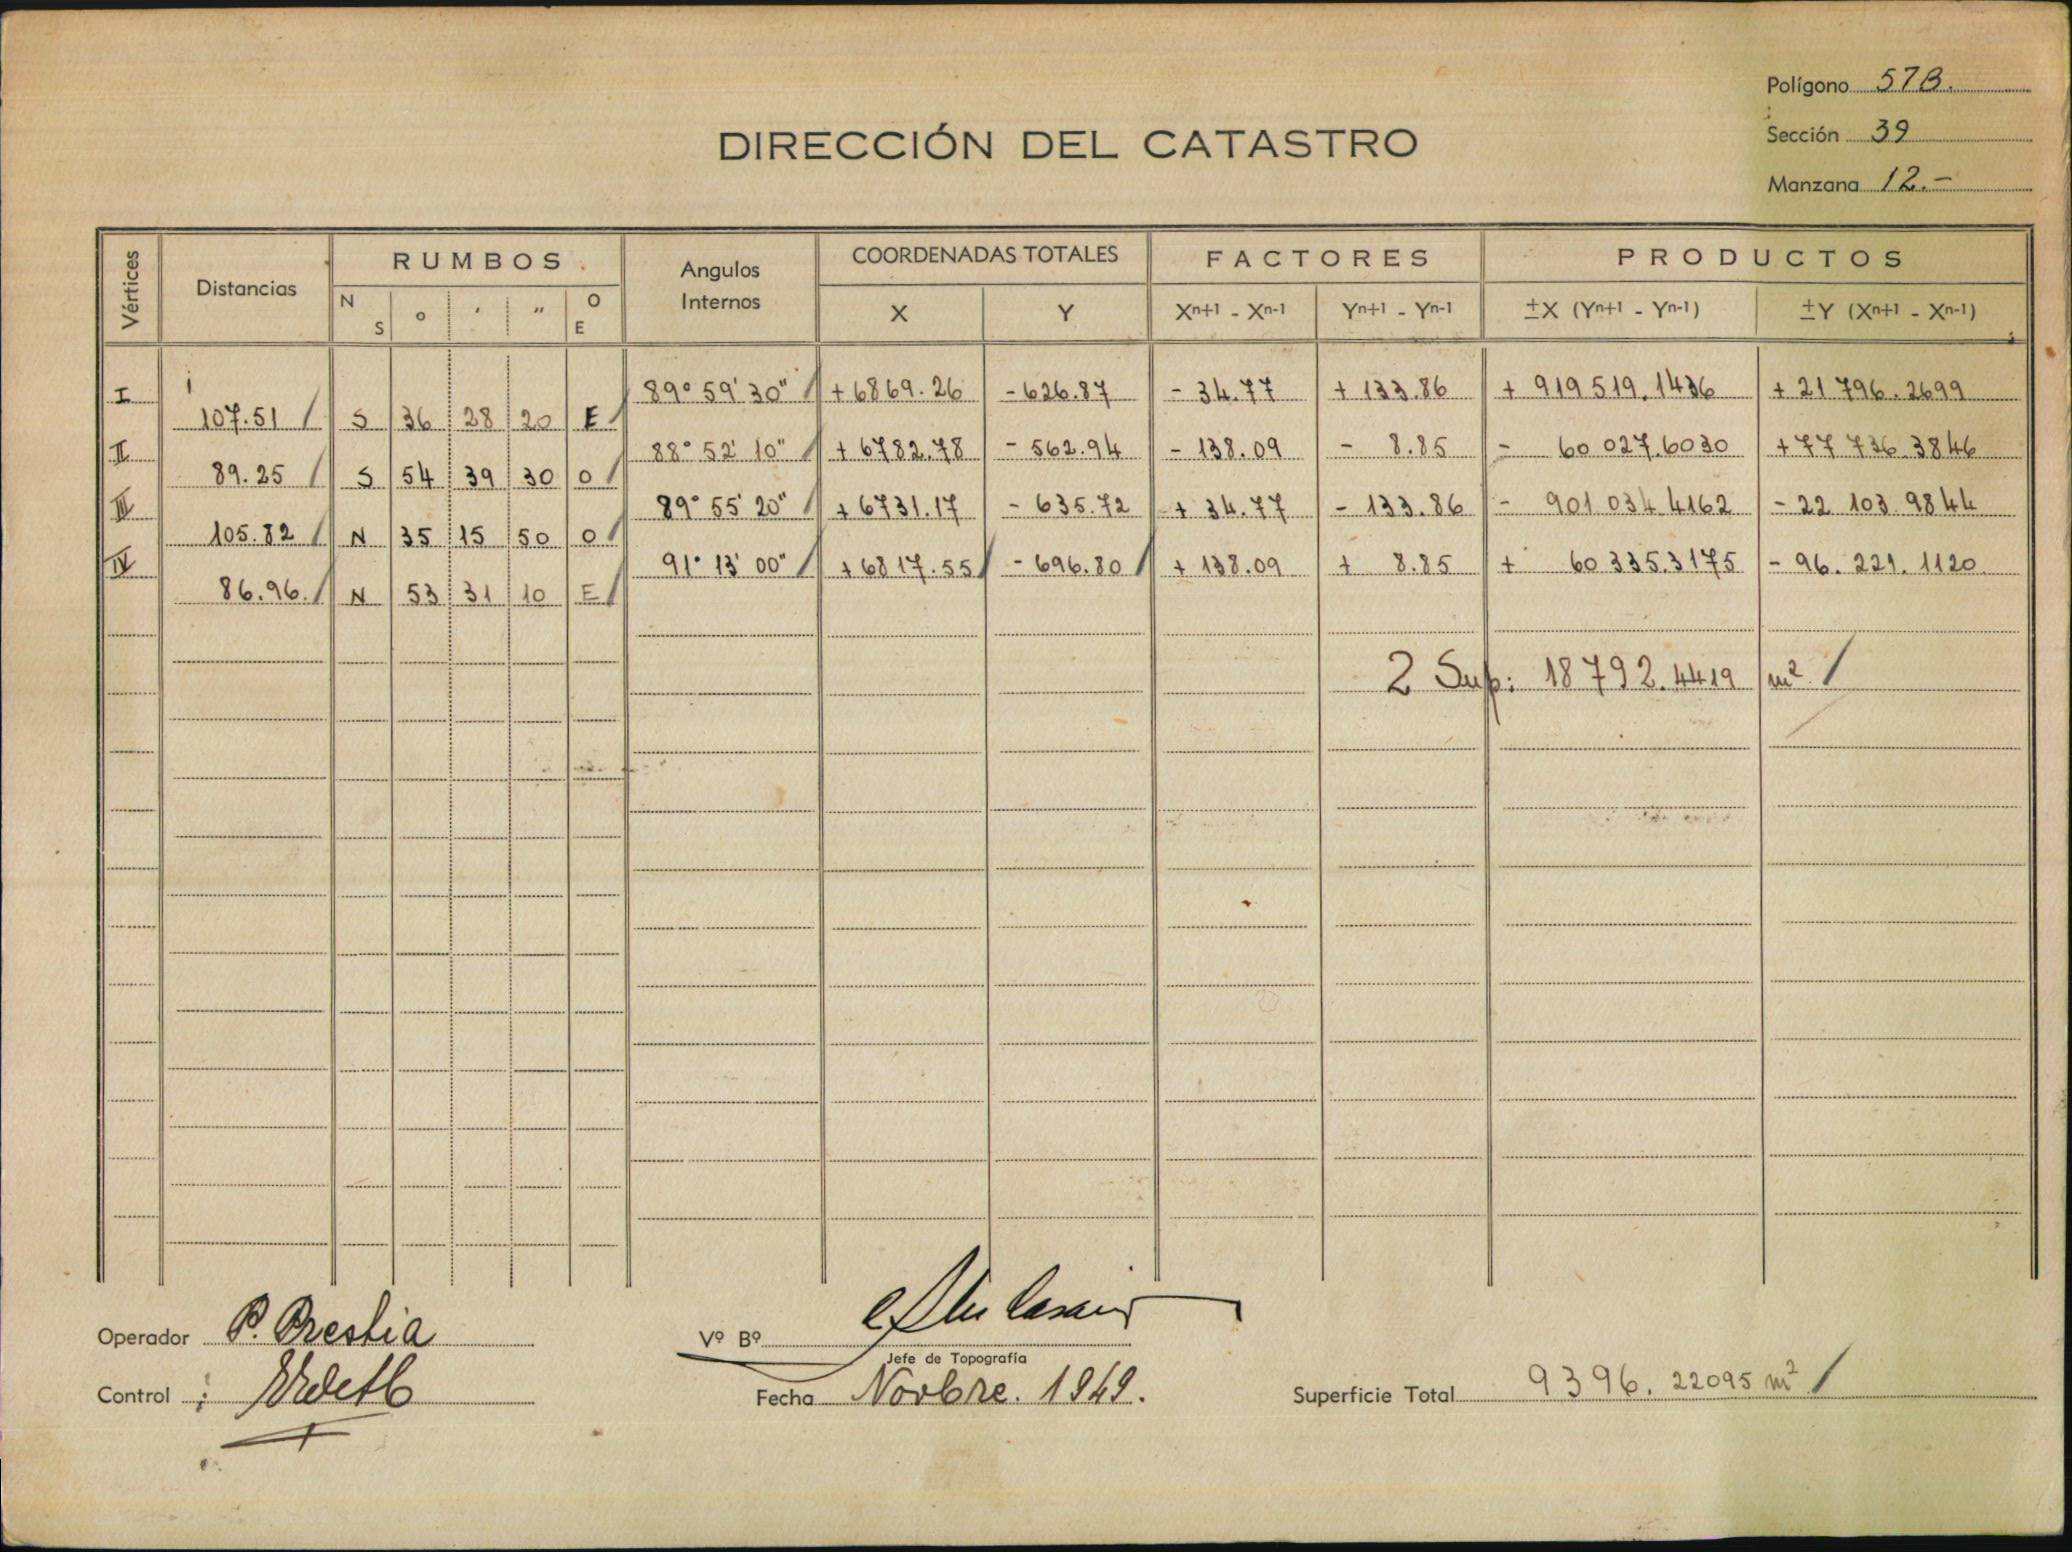 Polígono 57B.
Sección 39
Manzana 12.-
DIRECCIÓN DEL CATASTRO
Vértices Distancias RUMBOS Angulos Internos COORDENADAS TOTALES FACTORES PRODUCTOS
N S o ′ ″ O E X Y Xn+1 - Xn-1 Yn+1 - Yn-1 ±X (Yn+1 - Yn-1) ±Y (Xn+1 - Xn-1)
I 89° 59' 30" +6869.26 -626.87 - 34.77 + 133.86 + 919 519.1436 + 21 796.2699
107.51 S 36 28 20 E
II 88° 52' 10" + 6782.78 - 562.94 - 138.09 - 8.85 - 60 027.6030 + 77 736.3846
89.25 S 54 39 30 O
III 89° 55' 20" + 6731.17 - 635.72 + 34.77 - 133.86 - 901 034 4162 - 22 103.9844
105.82 N 35 15 50 O
IV 91° 13' 00" + 6817.55 - 696.80 + 138.09 + 8.85 + 60 335.3175 - 96.221.1120
86.96. N 53 31 10 E
2 Sup: 18792.4419 m²
Operador P. Prestia
Vº Bº
Jefe de Topografía
Control
Fecha Novbre. 1949.
Superficie Total 9396.22095 m²